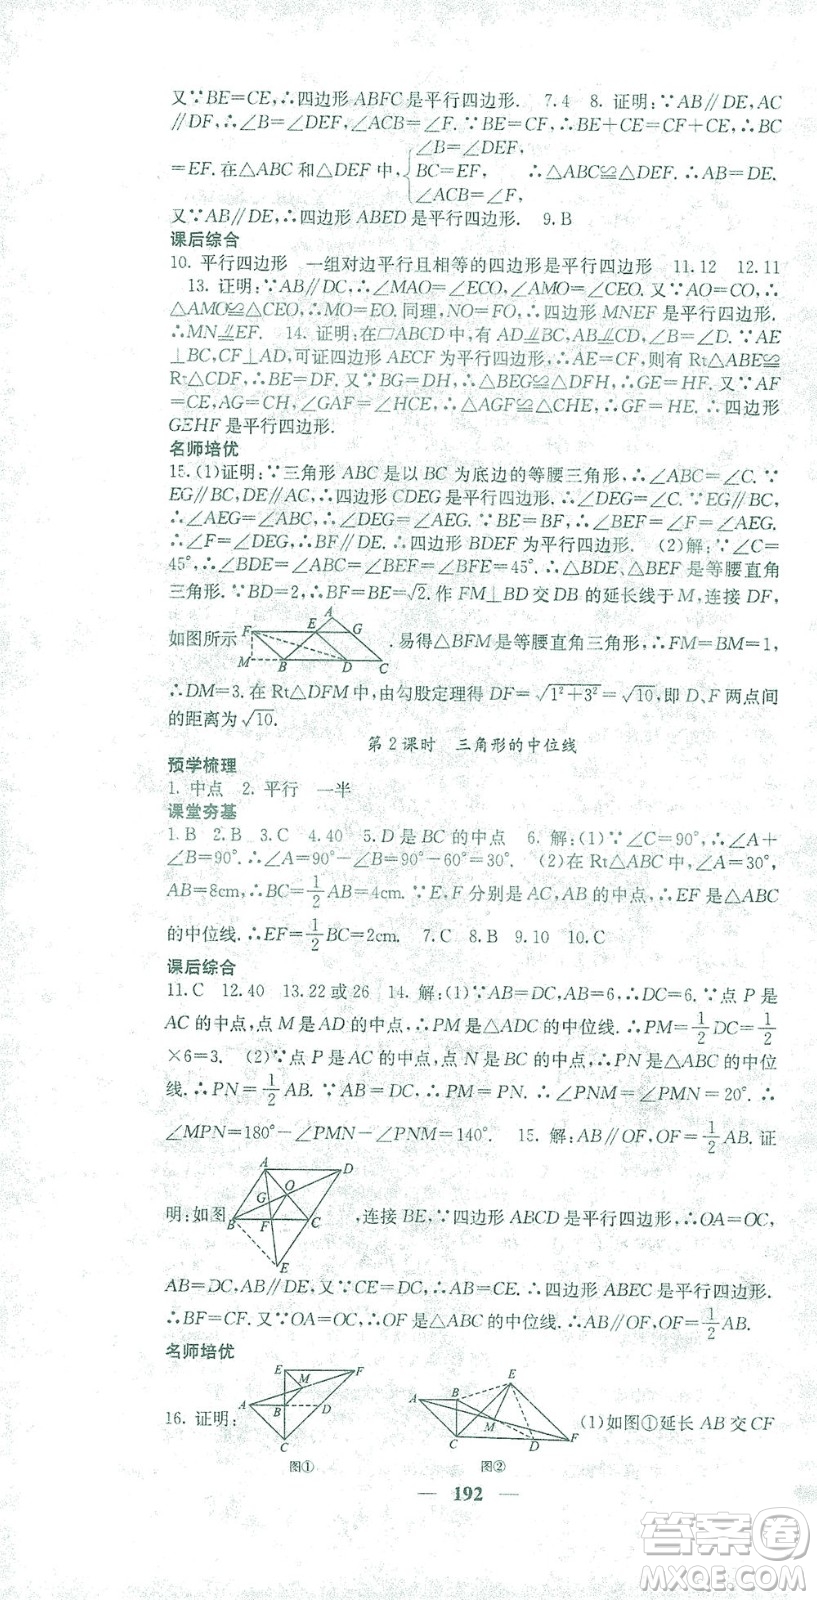 又∵BE=CE,∴四边形 ABFC 是平行四边形. 7.4 8. 证明:∵AB∥DE,AC
∥DF,∴∠B=∠DEF,∠ACB=∠F.∵BE=CF,∴BE+CE=CF+CE,∴BC
=EF. 在△ABC 和△DEF 中,{∠B=∠DEF, BC=EF, ∠ACB=∠F, ∴△ABC≌△DEF. ∴AB=DE.
又∵AB∥DE,∴四边形 ABED 是平行四边形. 9.B
课后综合
10. 平行四边形 一组对边平行且相等的四边形是平行四边形 11.12 12.11
13. 证明:∵AB∥DC,∴∠MAO=∠ECO,∠AMO=∠CEO. 又∵AO=CO,∴
△AMO≌△CEO,∴MO=EO. 同理,NO=FO,∴四边形 MNEF 是平行四边形.
∴MN⫽EF. 14. 证明:在▱ABCD 中,有 AD⫽BC,AB⫽CD,∠B=∠D.∵AE
⊥BC,CF⊥AD,可证四边形 AECF 为平行四边形,∴AE=CF. 则有 Rt△ABE≌
Rt△CDF,∴BE=DF. 又∵BG=DH,∴△BEG≌△DFH,∴GE=HF. 又∵AF
=CE,AG=CH,∠GAF=∠HCE,∴△AGF≌△CHE,∴GF=HE. ∴四边形
GEHF 是平行四边形.
名师培优
15. (1)证明:∵三角形 ABC 是以 BC 为底边的等腰三角形,∴∠ABC=∠C. ∵
EG∥BC,DE∥AC,∴四边形 CDEG 是平行四边形,∴∠DEG=∠C. ∵EG∥BC,
∴∠AEG=∠ABC,∴∠DEG=∠AEG. ∵BE=BF,∴∠BEF=∠F=∠AEG.
∴∠F=∠DEG,∴BF∥DE. ∴四边形 BDEF 为平行四边形. (2)解:∵∠C=
45°,∴∠BDE=∠ABC=∠BFE=∠BEF=45°. ∴△BDE、△BEF 是等腰直角
三角形. ∵BD=2,∴BF=BE=√2. 作 FM⊥BD 交 DB 的延长线于 M,连接 DF,
如图所示 F E A G M B D C . 易得△BFM 是等腰直角三角形,∴FM=BM=1,
∴DM=3. 在 Rt△DFM 中,由勾股定理得 DF=√(1²+3²)=√10,即 D、F 两点间
的距离为√10.
第 2 课时 三角形的中位线
预学梳理
1. 中点 2. 平行 一半
课堂夯基
1.B 2.B 3.C 4.40 5.D 是 BC 的中点 6. 解:(1)∵∠C=90°,∴∠A+
∠B=90°. ∴∠A=90°-∠B=90°-60°=30°. (2)在 Rt△ABC 中,∠A=30°,
AB=8cm,∴BC=1/2AB=4cm. ∵E,F 分别是 AC,AB 的中点,∴EF 是△ABC
的中位线.∴EF=1/2BC=2cm. 7.C 8.B 9.10 10.C
课后综合
11.C 12.40 13.22 或 26 14. 解:(1)∵AB=DC,AB=6,∴DC=6. ∵点 P 是
AC 的中点,点 M 是 AD 的中点,∴PM 是△ADC 的中位线. ∴PM=1/2DC=1/2
×6=3. (2)∵点 P 是 AC 的中点,点 N 是 BC 的中点,∴PN 是△ABC 的中位
线. ∴PN=1/2AB. ∵AB=DC,∴PM=PN. ∴∠PNM=∠PMN=20°. ∴
∠MPN=180°-∠PMN-∠PNM=140°. 15. 解:AB∥OF,OF=1/2AB. 证
明:如图 A D G O B F C E ,连接 BE,∵四边形 ABCD 是平行四边形,∴OA=OC,
AB=DC,AB∥DE,又∵CE=DC,∴AB=CE. ∴四边形 ABEC 是平行四边形.
∴BF=CF. 又∵OA=OC,∴OF 是△ABC 的中位线. ∴AB∥OF,OF=1/2AB.
名师培优
16. 证明: E F M A B D C 图① E A B M C D F 图② (1)如图①延长 AB 交 CF
— 192 —
答案圈
MXQE.COM